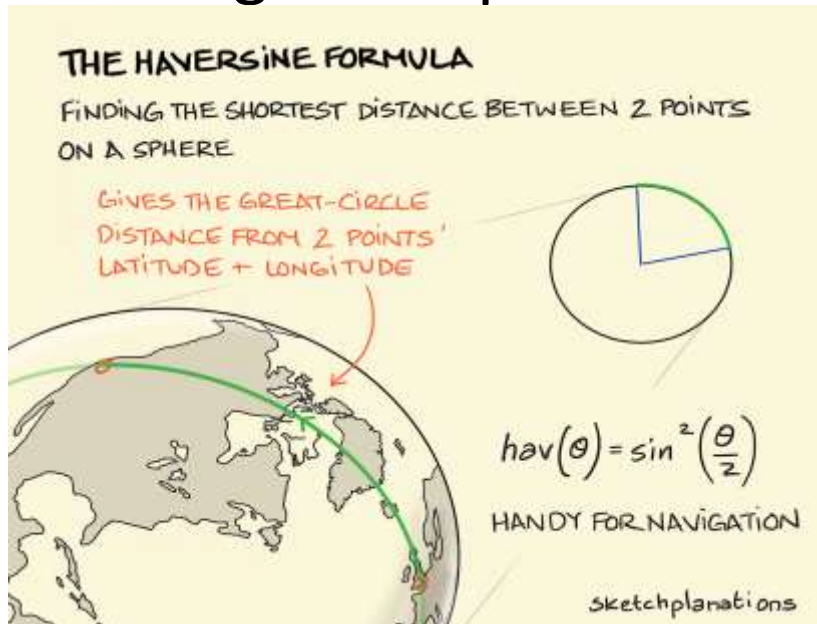 THE HAVERSINE FORMULA
FINDING THE SHORTEST DISTANCE BETWEEN 2 POINTS
ON A SPHERE
GIVES THE GREAT-CIRCLE
DISTANCE FROM 2 POINTS'
LATITUDE + LONGITUDE
hav(θ) = sin²(θ/2)
HANDY FOR NAVIGATION
sketchplanations